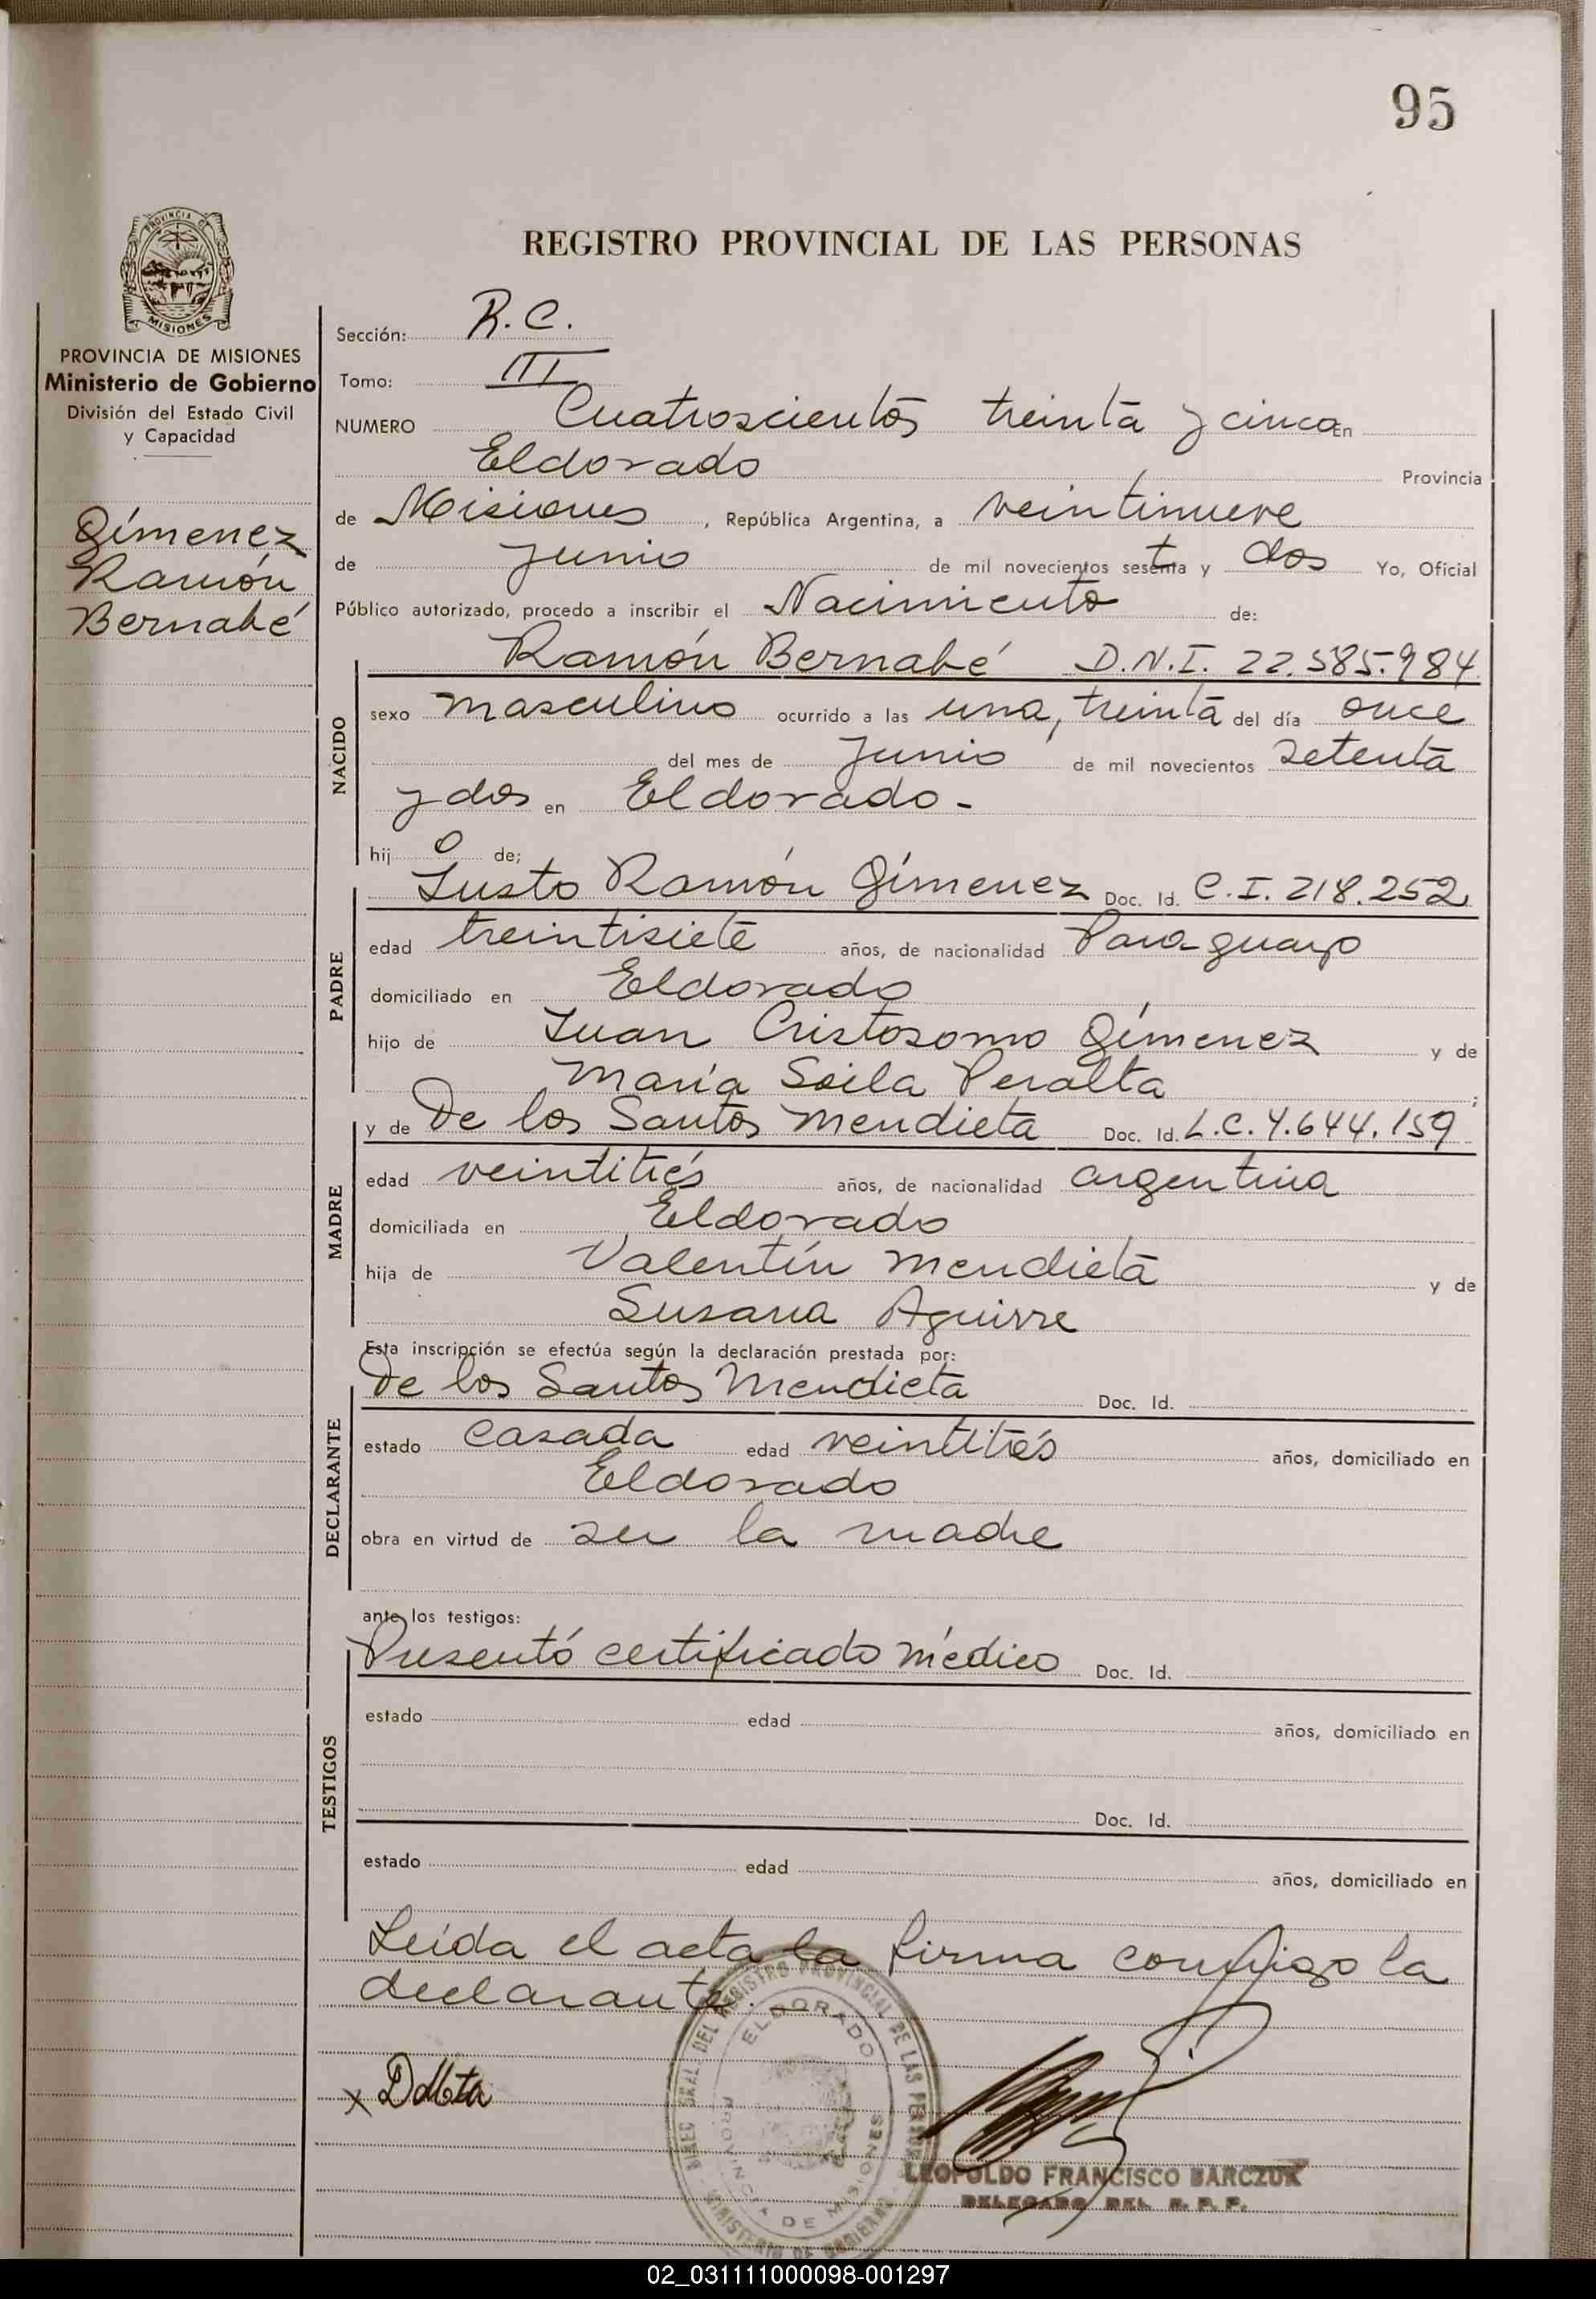 95
PROVINCIA DE
MISIONES
REGISTRO PROVINCIAL DE LAS PERSONAS
PROVINCIA DE MISIONES
Ministerio de Gobierno
División del Estado Civil
y Capacidad
Gímenez
Ramón
Bernabé
Sección: R.C.
Tomo: III
NUMERO Cuatroscientos treinta y cinco En
Eldorado Provincia
de Misiones, República Argentina, a veintinueve
de Junio de mil novecientos setenta y dos Yo, Oficial
Público autorizado, procedo a inscribir el Nacimiento de:
NACIDO
Ramón Bernabé D.N.I. 22.585.984
sexo masculino ocurrido a las una, treinta del día once
del mes de Junio de mil novecientos setenta
y dos en Eldorado.-
hij o de;
PADRE
Justo Ramón Gímenez Doc. Id. C.I. 218.252
edad treintisiete años, de nacionalidad Paraguayo
domiciliado en Eldorado
hijo de Juan Cristosomo Gímenez y de
María Soila Peralta ;
MADRE
y de De los Santos Mendieta Doc. Id. L.C. 4.644.159
edad veintitrés años, de nacionalidad argentina
domiciliada en Eldorado
hija de Valentín Mendieta y de
Susana Aguirre
Esta inscripción se efectúa según la declaración prestada por:
DECLARANTE
De los Santos Mendieta Doc. Id.
estado casada edad veintitrés años, domiciliado en
Eldorado
obra en virtud de ser la madre
ante los testigos:
TESTIGOS
Presentó certificado médico Doc. Id.
estado edad años, domiciliado en
Doc. Id.
estado edad años, domiciliado en
Leída el acta la firma conmigo la
declarante.-
DIREC. GRAL. DEL REGISTRO PROVINCIAL DE LAS PERSONAS
ELDORADO
PROVINCIA DE MISIONES
MINISTERIO DE GOBIERNO
x
LEOPOLDO FRANCISCO BARCZUK
DELEGADO DEL R. P. P.
02_031111000098-001297